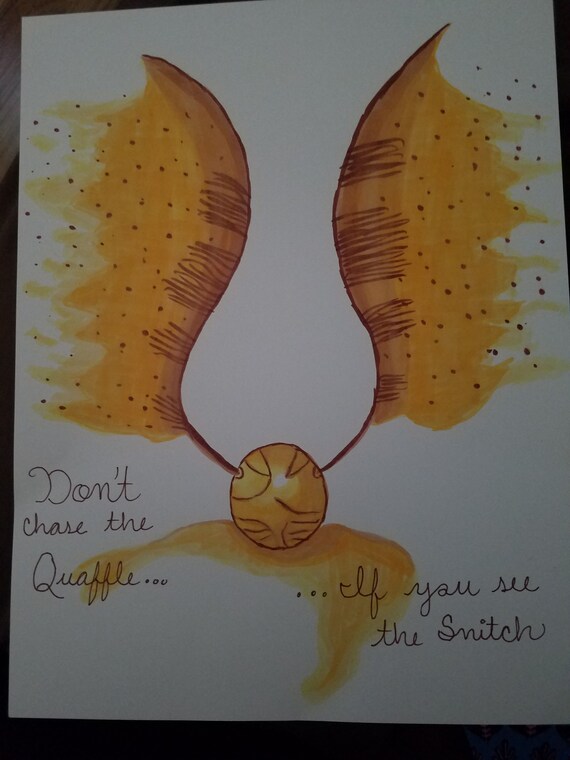 Don't
chase the
Quaffle...
...If you see
the Snitch